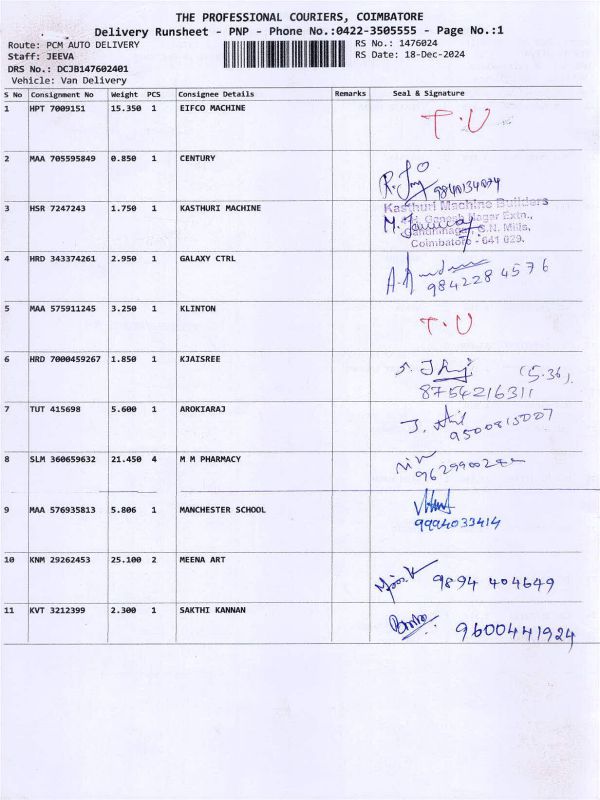 THE PROFESSIONAL COURIERS, COIMBATORE
Delivery Runsheet - PNP - Phone No.:0422-3505555 - Page No.:1
Route: PCM AUTO DELIVERY
RS No.: 1476024
Staff: JEEVA
RS Date: 18-Dec-2024
DRS No.: DCJB147602401
Vehicle: Van Delivery
S No Consignment No Weight PCS Consignee Details Remarks Seal & Signature
1 HPT 7009151 15.350 1 EIFCO MACHINE
T.U
2 MAA 705595849 0.850 1 CENTURY
3 HSR 7247243 1.750 1 KASTHURI MACHINE
Kasthuri Machine Builders
Ganesh Nagar Extn.,
Gandhinagar, S.N. Mills,
Coimbatore - 641 029.
4 HRD 343374261 2.950 1 GALAXY CTRL
9842284576
5 MAA 575911245 3.250 1 KLINTON
T.U
6 HRD 7000459267 1.850 1 KJAISREE
(5.36).
8754216311
7 TUT 415698 5.600 1 AROKIARAJ
8 SLM 360659632 21.450 4 M M PHARMACY
9 MAA 576935813 5.806 1 MANCHESTER SCHOOL
9994033414
10 KNM 29262453 25.100 2 MEENA ART
9894 404649
11 KVT 3212399 2.300 1 SAKTHI KANNAN
9600441924